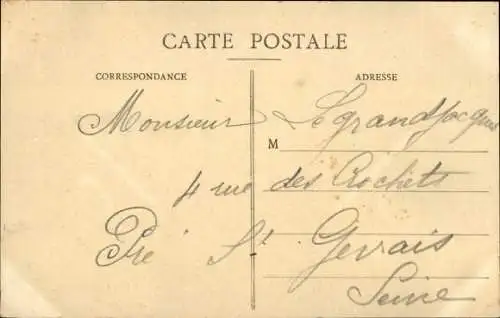 CARTE POSTALE
CORRESPONDANCE ADRESSE
Monsieur Legrand Jacques
M
4 rue des Rochets
Pré St Gervais
Seine